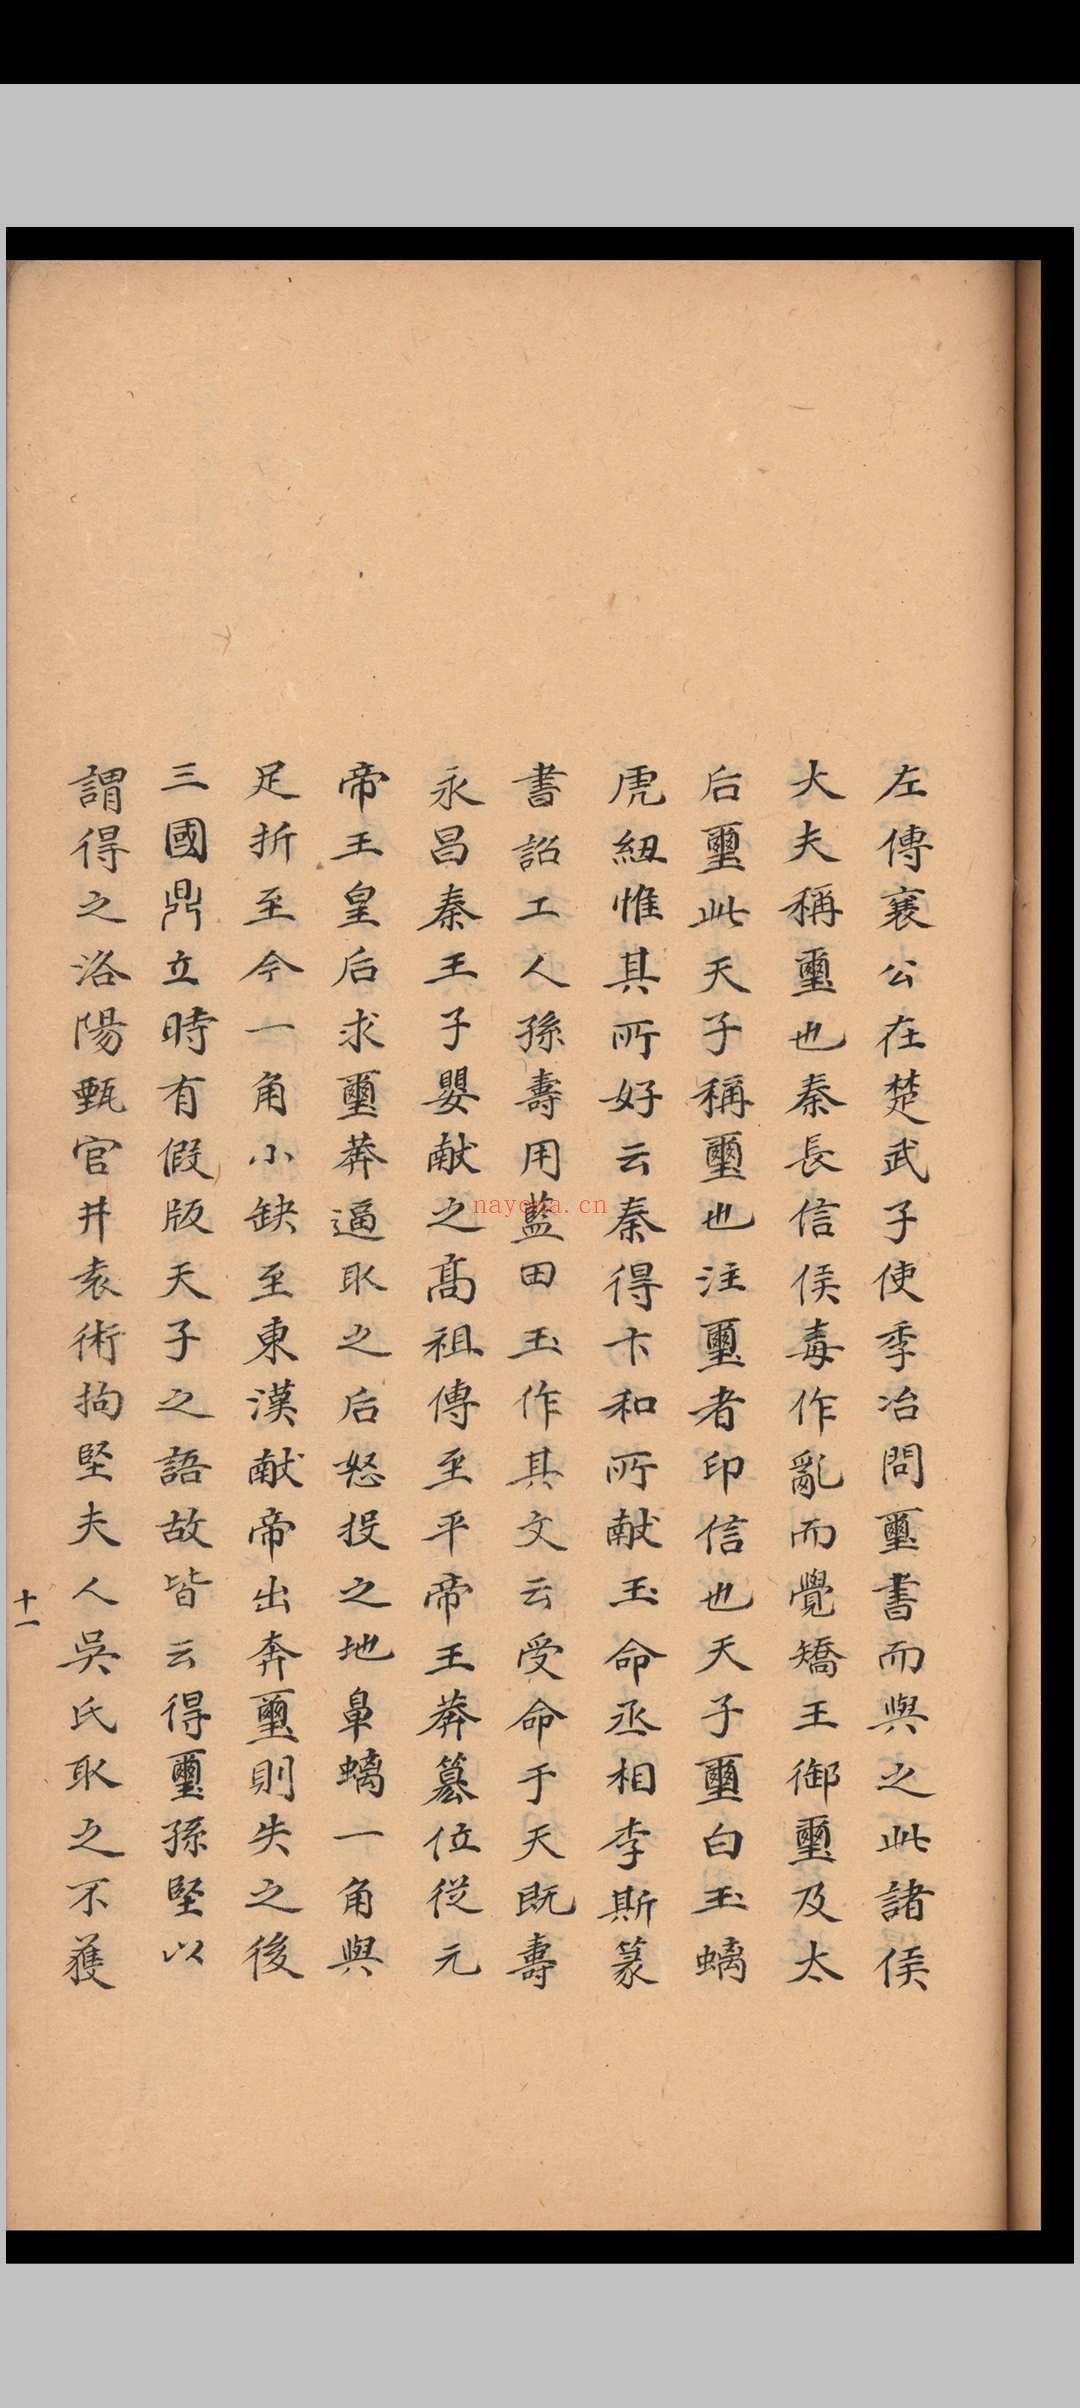 左傳襄公在楚武子使季冶問璽書而與之此諸侯
大夫稱璽也秦長信侯毐作亂而覺矯王御璽及太
后璽此天子稱璽也注璽者印信也天子璽白玉螭
虎紐惟其所好云秦得卞和所献玉命丞相李斯篆
書詔工人孫壽用藍田玉作其文云受命于天既壽
永昌秦王子嬰献之高祖傳至平帝王莽篡位從元
帝王皇后求璽莽逼取之后怒投之地鼻螭一角與
足折至今一角小缺至東漢献帝出奔璽則失之後
三國鼎立時有假版天子之語故皆云得璽孫堅以
謂得之洛陽甄官井袁術拘堅夫人吳氏取之不獲
十一
nayona.cn